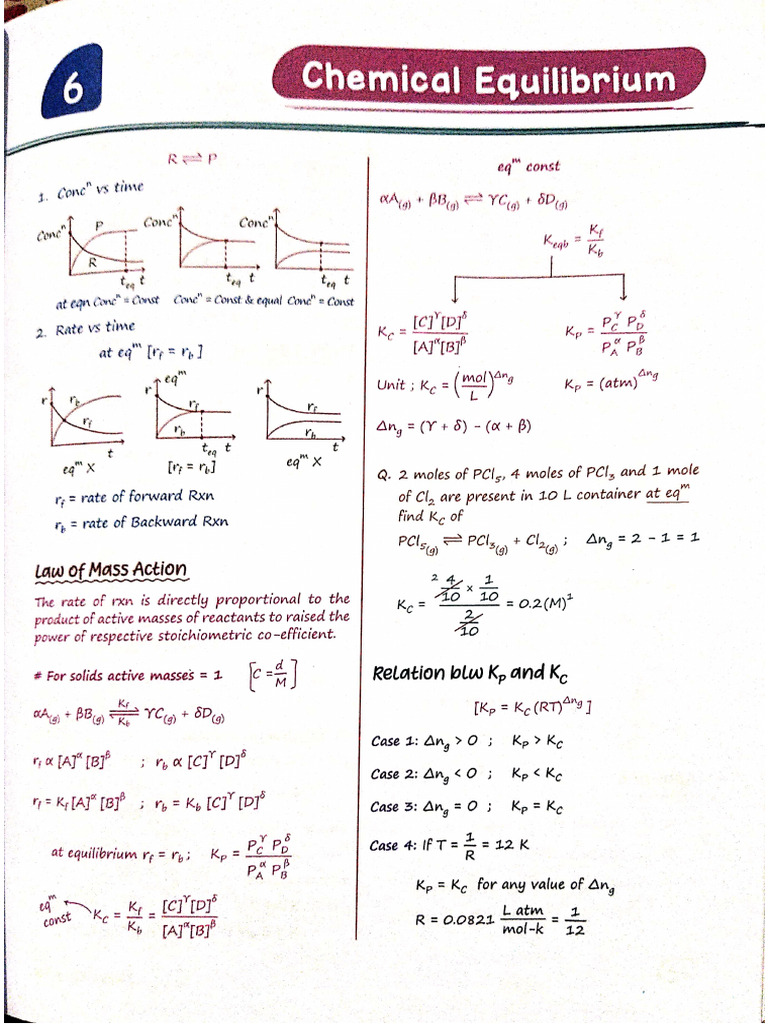 6
Chemical Equilibrium
R ⇌ P
1. Concⁿ vs time
Concⁿ P R t_eq t
Concⁿ t_eq t
Concⁿ t_eq t
at eqn Concⁿ = Const Concⁿ = Const & equal Concⁿ = Const
2. Rate vs time
at eqᵐ [r_f = r_b]
r r_b r_f t
eqᵐ r r_f r_b t_eq t
r r_f r_b t
eqᵐ X [r_f = r_b] eqᵐ X
r_f = rate of forward Rxn
r_b = rate of Backward Rxn
Law of Mass Action
The rate of rxn is directly proportional to the
product of active masses of reactants to raised the
power of respective stoichiometric co-efficient.
# For solids active masses = 1 [C = d/M]
αA(g) + βB(g) ⇌ (K_f / K_b) ϒC(g) + δD(g)
r_f α [A]^α [B]^β ; r_b α [C]^ϒ [D]^δ
r_f = K_f [A]^α [B]^β ; r_b = K_b [C]^ϒ [D]^δ
at equilibrium r_f = r_b ; K_P = P_C^ϒ P_D^δ / P_A^α P_B^β
eqᵐ const K_C = K_f / K_b = [C]^ϒ [D]^δ / [A]^α [B]^β
eqᵐ const
αA(g) + βB(g) ⇌ ϒC(g) + δD(g)
K_eqb = K_f / K_b
K_C = [C]^ϒ [D]^δ / [A]^α [B]^β K_P = P_C^ϒ P_D^δ / P_A^α P_B^β
Unit ; K_C = (mol / L)^Δn_g K_P = (atm)^Δn_g
Δn_g = (ϒ + δ) - (α + β)
Q. 2 moles of PCl₅, 4 moles of PCl₃ and 1 mole
of Cl₂ are present in 10 L container at eqᵐ
find K_C of
PCl₅(g) ⇌ PCl₃(g) + Cl₂(g) ; Δn_g = 2 - 1 = 1
K_C = (² 4/10 × 1/10) / (2/10) = 0.2(M)¹
Relation b/w K_P and K_C
[K_P = K_C (RT)^Δn_g]
Case 1: Δn_g > 0 ; K_P > K_C
Case 2: Δn_g < 0 ; K_P < K_C
Case 3: Δn_g = 0 ; K_P = K_C
Case 4: If T = 1/R = 12 K
K_P = K_C for any value of Δn_g
R = 0.0821 L atm / mol-k = 1/12